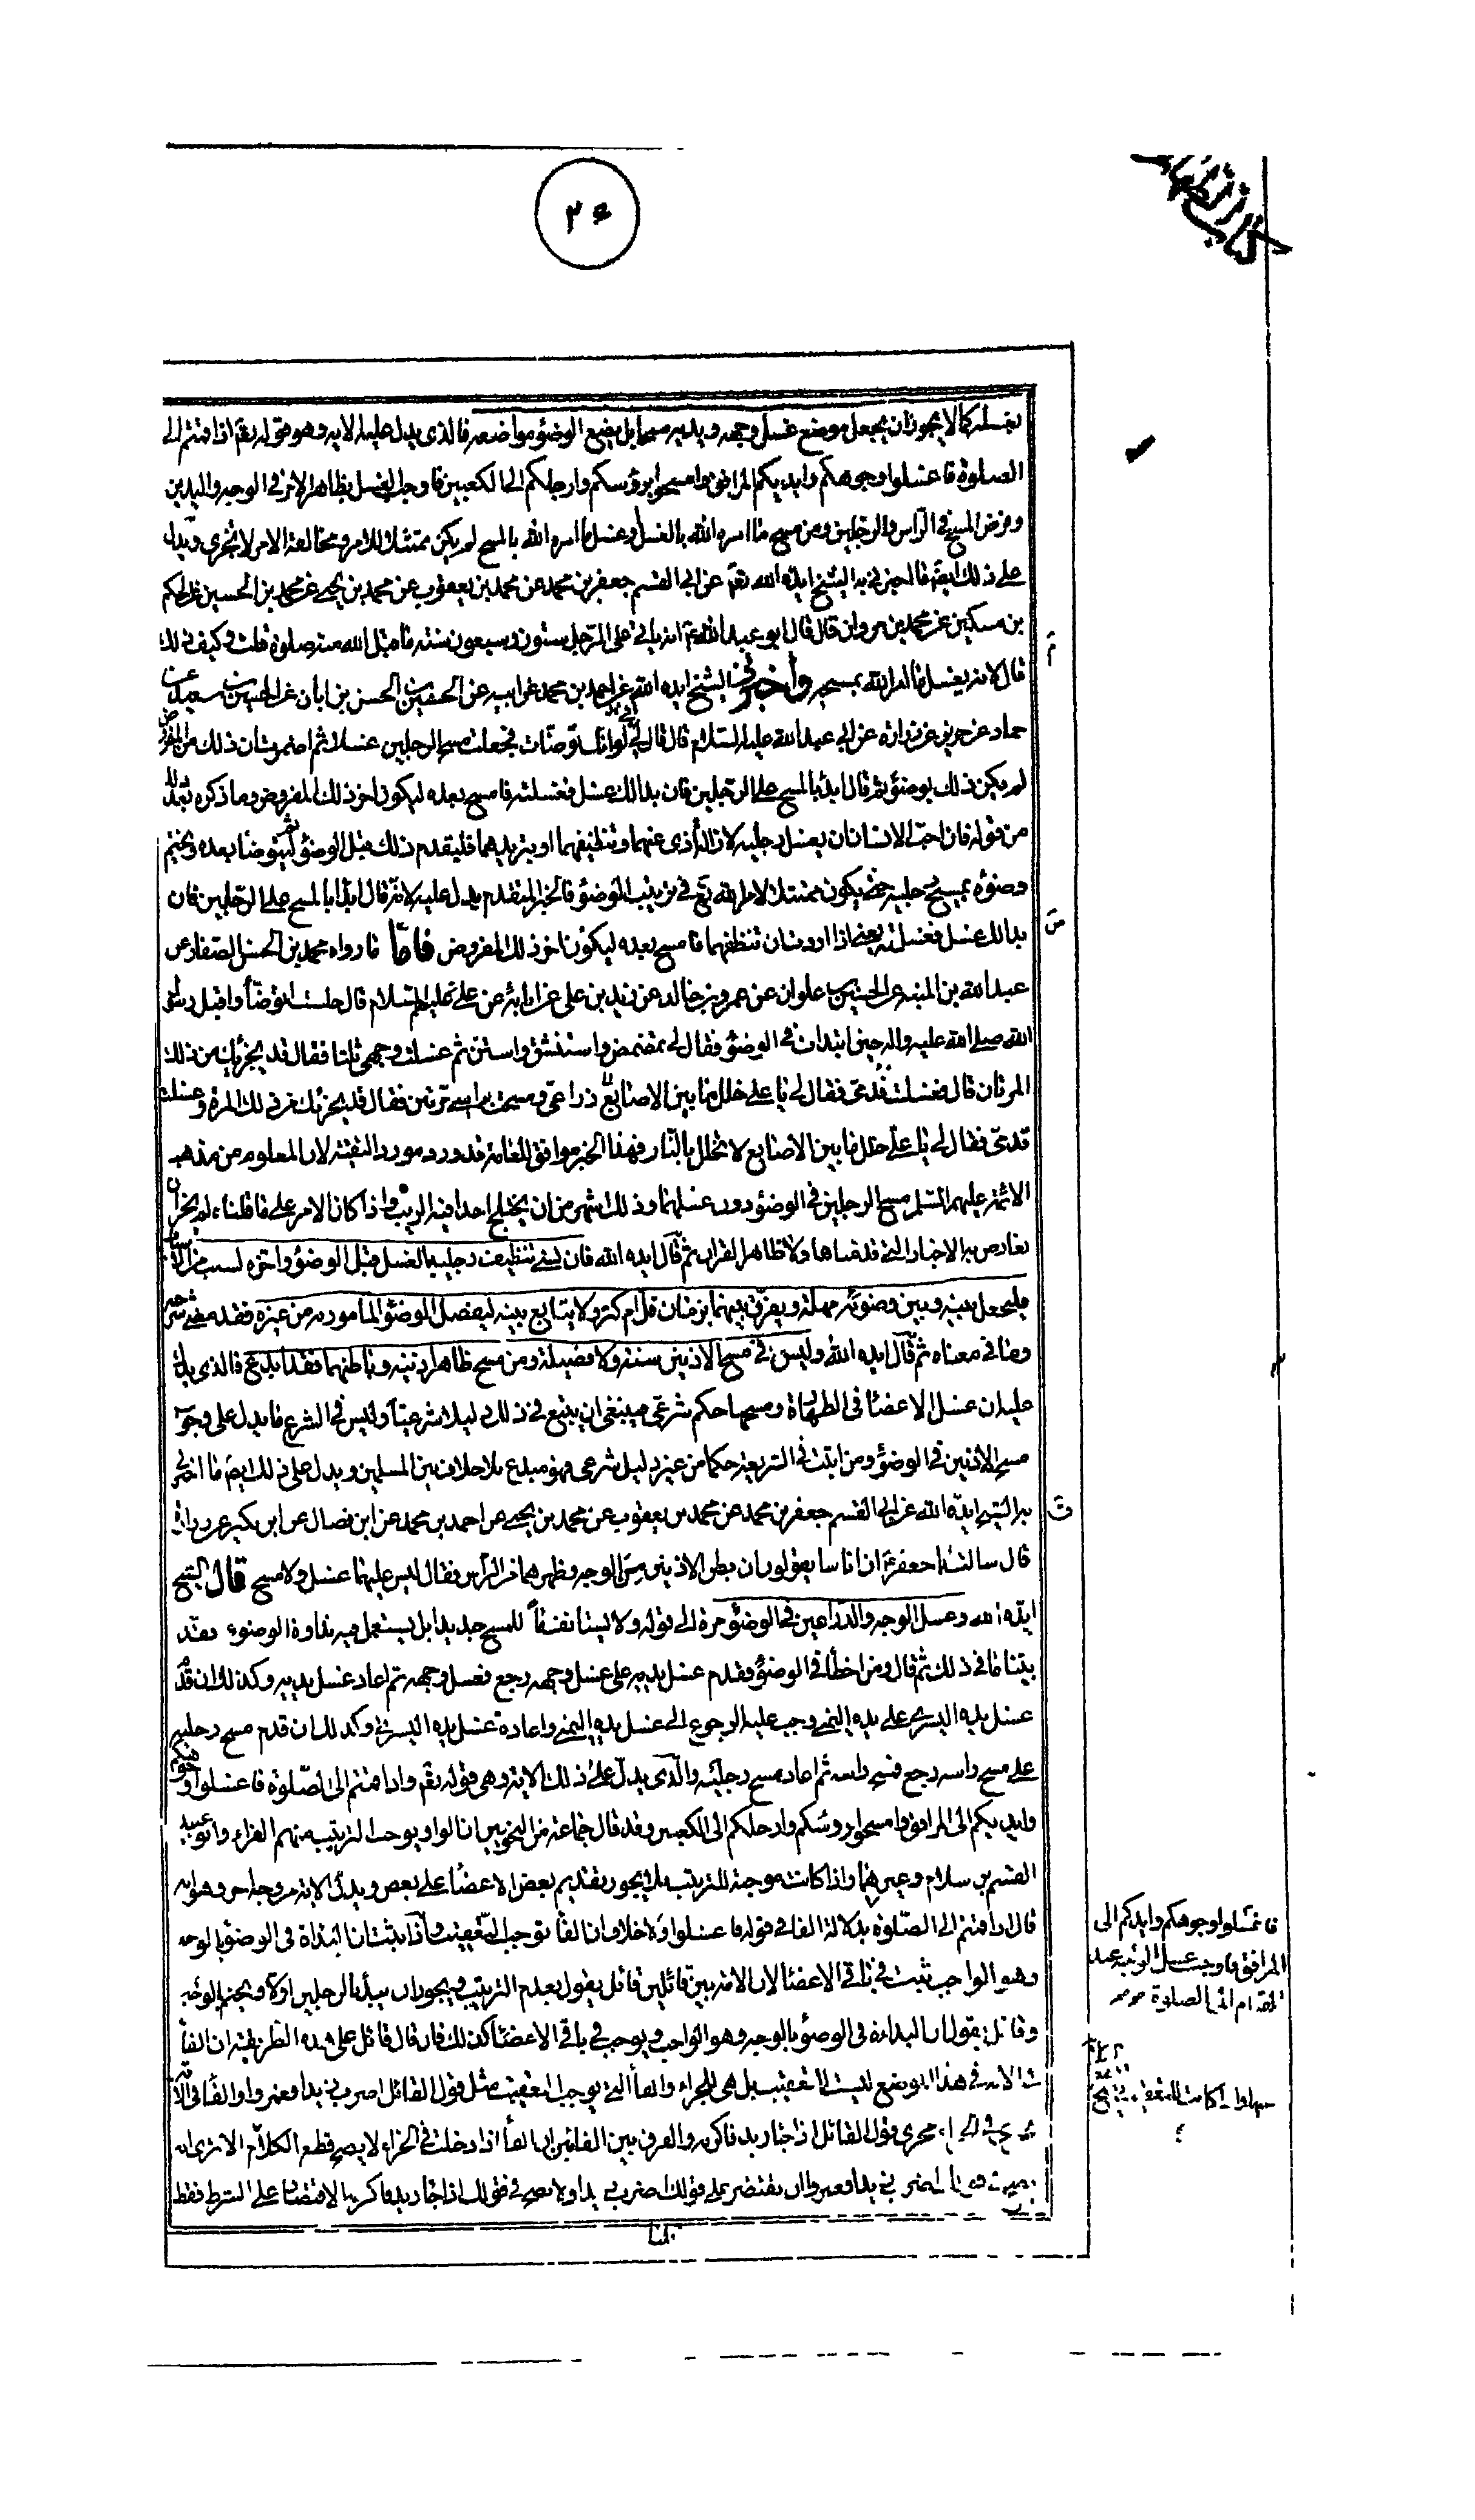 كتاب الطهارة
٢٤
بغسله كما لا يجوز ان يجعل موضع غسل وجهه ويديه مسحا بل يضع الوضوء مواضعه فالذى يدل عليه الاية وهو قوله تعم اذا قمتم الى
الصلوة فاغسلوا وجوهكم وايديكم الى المرافق وامسحوا برؤسكم وارجلكم الى الكعبين فاوجب الغسل بظاهر الامر فى الوجه واليدين
وفرض المسح فى الراس والرجلين ومن مسح ما امره الله بالغسل وغسل ما امره الله بالمسح لم يكن ممتثلا للامر ومخالفة الامر لا تجزى ويدل
على ذلك ايضا ما اخبرنى به الشيخ ايده الله تعم عن ابى القسم جعفر بن محمد عن محمد بن يعقوب عن محمد بن يحيى عن محمد بن الحسين عن الحكم
بن مسكين عن محمد بن مروان قال قال ابو عبد الله ع انه ياتى على الرجل ستون وسبعون سنة ما قبل الله منه صلوة قلت وكيف ذلك
قال لانه يغسل ما امر الله بمسحه وأخبرنى الشيخ ايده الله عن احمد بن محمد عن ابيه عن الحسين بن الحسن بن ابان عن الحسين بن سعيد عن
حماد عن حريز عن زرارة عن ابى عبد الله عليه السلام قال قال لى لو انك توضات فجعلت مسح الرجلين غسلا ثم اضمرت ان ذلك من المفروض
لم يكن ذلك بوضوء ثم قال ابدء بالمسح على الرجلين فان بدا لك غسل فغسلته فامسح بعده ليكون اخر ذلك المفروض وما ذكره بعد ذلك
من قوله فان احب الانسان ان يغسل رجليه لازالة أذى عنهما وتنظيفهما او تبريدهما فليقدم ذلك قبل الوضوء ثم ليتوضا بعده ويختم
وضوئه بمسح رجليه حتى يكون ممتثلا لامر الله تع فى ترتيب الوضوء فالخبر المتقدم يدل عليه لانه قال ابدأ بالمسح على الرجلين فان
بدا لك غسل فغسلته يعنى اذا اردت ان تنظفهما فامسح بعده ليكون اخر ذلك المفروض فامّا ما رواه محمد بن الحسن الصفار عن
عبد الله بن المنبه عن الحسين بن علوان عن عمرو بن خالد عن زيد بن على عن ابائه عن على عليهم السلام قال جلست اتوضأ واقبل رسول
الله صلى الله عليه واله حين ابتدات فى الوضوء فقال لى تمضمض واستنشق واستن ثم غسلت وجهى ثلثا فقال قد يجزيك من ذلك
المرتان قال فغسلت ذراعى ومسحت براسى مرتين فقال قد يجزئك من ذلك المرة وغسلت
قدمى فقال لى يا على خلل ما بين الاصابع لا تخلل بالنار فهذا الخبر موافق للعامة قد ورد مورد التقية لان المعلوم من مذهب
الائمة عليهم السلم مسح الرجلين فى الوضوء دون غسلهما وذلك اشهر من ان يختلج احدا فيه الريب واذا كان الامر على ما قلناه لم يجز ان
تعارض به الاخبار التى قدمناها ولا ظاهر القران ثم قال ايده الله فان نسى تنظيف رجليه بالغسل قبل الوضوء واخره لسبب من الاسباب
فليجعل بينه وبين وضوئه مهلة ويفرق بينهما بزمان قل ام كثر ولا يتابع بينه ليفصل الوضوء المامور به من غيره فقد مضى شرحه
وما فى معناه ثم قال ايده الله وليس فى مسح الاذنين سنة ولا فضيلة ومن مسح ظاهر اذنيه وباطنهما فقد ابدع فالذى يدل
عليه ان غسل الاعضا فى الطهارة ومسحها حكم شرعى فينبغى ان يتبع فى ذلك دليلا شرعيا وليس فى الشرع ما يدل على وجوب
مسح الاذنين فى الوضوء ومن اثبت فى الشريعة حكما من غير دليل شرعى فهو مبدع بلا خلاف بين المسلمين ويدل على ذلك ايضا ما اخبرنى
به الشيخ ايده الله عن ابى القسم جعفر بن محمد عن محمد بن يعقوب عن محمد بن يحيى عن احمد بن محمد عن ابن فضال عن ابن بكير عن زرارة
قال سالت ابا جعفر ع ان اناسا يقولون ان بطن الاذنين من الوجه وظهرهما من الراس فقال ليس عليهما غسل ولا مسح قال الشيخ
ايده الله وغسل الوجه والذراعين فى الوضوء مرة الى قوله ولا يستانف للمسح جديدا بل يستعمل فيه نداوة الوضوء فقد
بينا ما فى ذلك ثم قال ومن اخطأ فى الوضوء فقدم غسل يديه على غسل وجهه رجع فغسل وجهه ثم اعاد غسل يديه وكذلك ان قدم
غسل يده اليسرى على يده اليمنى وجب عليه الرجوع الى غسل يده اليمنى واعادة غسل يده اليسرى وكذلك ان قدم مسح رجليه
على مسح راسه رجع فمسح راسه ثم اعاد مسح رجليه والذى يدل على ذلك الاية وهى قوله تعم واذا قمتم الى الصلوة فاغسلوا وجوهكم
وايديكم الى المرافق وامسحوا برؤسكم وارجلكم الى الكعبين وقد قال جماعة من النحويين ان الواو يوجب الترتيب منهم الفراء وابو عبيد
القسم بن سلام وغيرهما واذا كانت موجبة للترتيب فلا يجوز تقديم بعض الاعضا على بعض ويدل الاية من وجه اخر وهو انه
قال اذا قمتم الى الصلوة بدلالة الفا فى قوله فاغسلوا ولا خلاف ان الفا توجب التعقيب واذا ثبتت ان البداة فى الوضوء بالوجه
وهو الواجب ثبت فى باقى الاعضا لان الامة بين قائلين قائل يقول بعدم الترتيب ويجوز ان يبدأ بالرجلين اولا ويختم بالوجه
وقائل يقول ان البداءة فى الوضوء بالوجه وهو الواجب ويوجب فى باقى الاعضا كذلك فان قال قائل على هذه الطريقة ان الفا
فى هذا الموضع ليست للتعقيب بل هى للجزاء وانما الفا التى يوجب التعقيب مثل قول القائل اضرب زيدا فعمروا والفا فى الاية
مجرى قول القائل اذا جاء زيد فاكرمه والفرق بين الفائين ان الفا اذا دخلت فى الجزاء لا يصح قطع الكلام الا ترى انه
زيدا فعمروا ان يقتصر على قولك اضرب زيدا ولا يصح فى قولك اذا جاء زيد فاكرمه الاقتصار على الشرط فقط
قلنا
فاغسلوا وجوهكم وايديكم الى
المرافق فاوجب غسل الوجه عند
القيام الى الصلوة